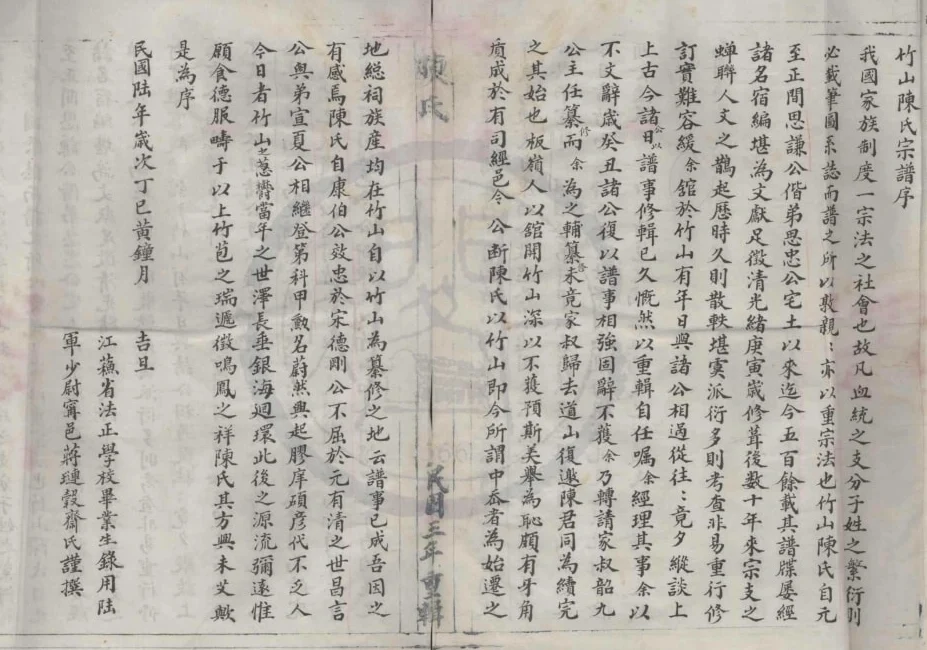 竹山陳氏宗譜序
我國家族制度一宗法之社會也故凡血統之支分子姓之繁衍則
必載筆圖系誌而譜之所以敦親:亦以重宗法也竹山陳氏自元
至正間思謙公偕弟思忠公宅土以來迄今五百餘載其譜牒屢經
諸名宿編堪為文獻足徵清光緒庚寅歲修葺後數十年來宗支之
蟬聯人文之鵲起歷時久則散軼堪虞派衍多則考查非易重行修
訂實難容緩余舘於竹山有年日與諸公相過從往:竟夕縱談上
上古今諸公日以譜事修輯已久慨然以重輯自任嘱余經理其事余以
不文辭歲癸丑諸公復以譜事相強固辭不獲余乃轉請家叔韶九
公主任纂修而余為之輔纂未竟家叔歸去道山復邀陳君同為續完
之其始也板嶺人以舘開竹山深以不獲預斯美舉為恥頗有牙角
質成於有司經邑令公断陳氏以竹山即今所謂中岙者為始遷之
地総祠族産均在竹山自以竹山為纂修之地云譜事已成吾因之
有感焉陳氏自康伯公效忠於宋德剛公不屈於元有清之世昌言
公與弟宣夏公相繼登第科甲勳名蔚然興起膠庠碩彦代不乏人
今日者竹山之蔥欝當年之世澤長垂銀海迴環此後之源流彌遠惟
願食德服疇于以上竹苞之瑞遞徵鳴鳳之祥陳氏其方興未艾歟
是為序
民國陸年歲次丁巳黃鐘月 吉旦
江蘇省法正學校畢業生錄用陸
軍少尉甯邑蔣璉穀齋氏謹撰
陳氏
民國三年重輯